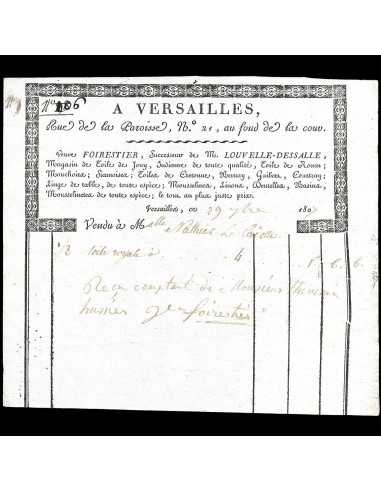 N.o 106
A VERSAILLES,
Rue de la Paroisse, N.o 21, au fond de la cour.
Veuve FOIRESTIER, Successeur de M. LOUVELLE-DESSALLE,
Magasin de Toile de Jouy, Indienne de toute qualité, Toiles de Rouen;
Mouchoirs; Siamoises; Toiles de Cretonne, Bernay, Guibert, Courtray;
Linge de table, de toute espèce; Mousselines, Linons, Dentelles, Basins,
Mousselinettes de toute espèce; le tout au plus juste prix.
Versailles, ce 29 9bre 1807
Vendu à Melle
1/2 toile royale à 4
Reçu comptant de Monsieur
foirestier